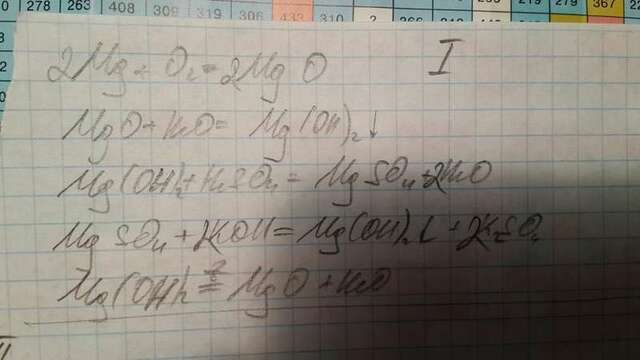 278 263 408 309 319 310 433 310 ? 266 219 279 367
I
2Mg + O₂ = 2MgO
MgO + H₂O = Mg(OH)₂↓
Mg(OH)₂ + H₂SO₄ = MgSO₄ + 2H₂O
MgSO₄ + 2KOH = Mg(OH)₂↓ + 2K₂SO₄
Mg(OH)₂ = MgO + H₂O